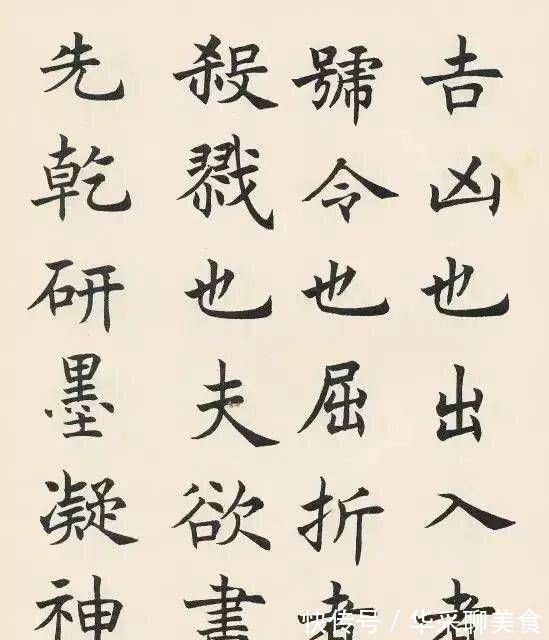 吉凶也出入者
號令也屈折者
殺戮也夫欲書
先乾研墨凝神
快传号/华采聊美食